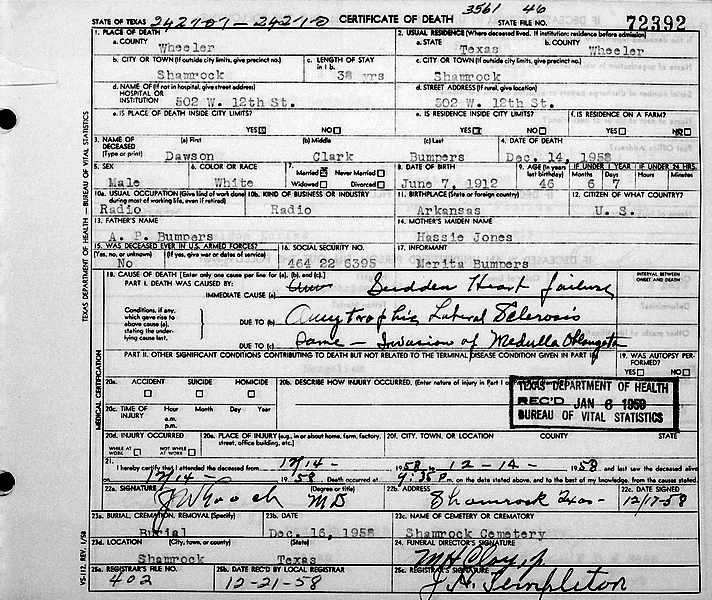 3561 46
STATE OF TEXAS 242707-24271 CERTIFICATE OF DEATH STATE FILE NO. 72392
1. PLACE OF DEATH 2. USUAL RESIDENCE (Where deceased lived. If institution: residence before admission)
a. COUNTY Wheeler a. STATE Texas b. COUNTY Wheeler
b. CITY OR TOWN (If outside city limits, give precinct no.) c. LENGTH OF STAY in 1 b. c. CITY OR TOWN (If outside city limits, give precinct no.)
Shamrock 38 yrs Shamrock
d. NAME OF (If not in hospital, give street address) HOSPITAL OR INSTITUTION d. STREET ADDRESS (If rural, give location)
502 W. 12th St. 502 W. 12th St.
e. IS PLACE OF DEATH INSIDE CITY LIMITS? e. IS RESIDENCE INSIDE CITY LIMITS? f. IS RESIDENCE ON A FARM?
YES NO YES NO YES NO
3. NAME OF DECEASED (Type or print) (a) First (b) Middle (c) Last 4. DATE OF DEATH
Dawson Clark Bumpers Dec. 14, 1958
5. SEX 6. COLOR OR RACE 7. Married Never Married Widowed Divorced 8. DATE OF BIRTH 9. AGE (In years last birthday) IF UNDER 1 YEAR Months Days IF UNDER 24 HRS. Hours Minutes
Male White June 7, 1912 46 6 7
10a. USUAL OCCUPATION (Give kind of work done during most of working life, even if retired) 10b. KIND OF BUSINESS OR INDUSTRY 11. BIRTHPLACE (State or foreign country) 12. CITIZEN OF WHAT COUNTRY?
Radio Radio Arkansas U. S.
13. FATHER'S NAME 14. MOTHER'S MAIDEN NAME
A. P. Bumpers Hassie Jones
15. WAS DECEASED EVER IN U.S. ARMED FORCES? (Yes, no, or unknown) (If yes, give war or dates of service) 16. SOCIAL SECURITY NO. 17. INFORMANT
No 464 22 6395 Merita Bumpers
18. CAUSE OF DEATH [Enter only one cause per line for (a), (b), and (c).] INTERVAL BETWEEN ONSET AND DEATH
PART I. DEATH WAS CAUSED BY:
IMMEDIATE CAUSE (a) Sudden Heart failure
Conditions, if any, which gave rise to above cause (a), stating the underlying cause last.
DUE TO (b) Amytrophic Lateral Sclerosis
DUE TO (c) Same - Invasion of Medulla Oblongata
PART II. OTHER SIGNIFICANT CONDITIONS CONTRIBUTING TO DEATH BUT NOT RELATED TO THE TERMINAL DISEASE CONDITION GIVEN IN PART I(a) 19. WAS AUTOPSY PERFORMED?
YES NO
20a. ACCIDENT SUICIDE HOMICIDE 20b. DESCRIBE HOW INJURY OCCURRED. (Enter nature of injury in Part I or Part
20c. TIME OF INJURY Hour Month Day Year a.m. p.m.
TEXAS DEPARTMENT OF HEALTH
REC'D JAN 6 1959
BUREAU OF VITAL STATISTICS
20d. INJURY OCCURRED WHILE AT WORK NOT WHILE AT WORK 20e. PLACE OF INJURY (e.g., in or about home, farm, factory, street, office building, etc.) 20f. CITY, TOWN, OR LOCATION COUNTY STATE
21. I hereby certify that I attended the deceased from 12/14- 1958 to 12-14- 1958 and last saw the deceased alive
on 12/14- 1958. Death occurred at 4:35 P m. on the date stated above; and to the best of my knowledge, from the causes stated.
22a. SIGNATURE (Degree or title) 22b. ADDRESS 22c. DATE SIGNED
J W Gooch MD Shamrock Texas 12/17-58
23a. BURIAL, CREMATION, REMOVAL (Specify) 23b. DATE 23c. NAME OF CEMETERY OR CREMATORY
Burial Dec. 16, 1958 Shamrock Cemetery
23d. LOCATION (City, town, or county) (State) 24. FUNERAL DIRECTOR'S SIGNATURE
Shamrock Texas M H Clay, Jr.
25a. REGISTRAR'S FILE NO. 25b. DATE REC'D BY LOCAL REGISTRAR 25c. REGISTRAR'S SIGNATURE
402 12-21-58 J. A. Templeton
TEXAS DEPARTMENT OF HEALTH — BUREAU OF VITAL STATISTICS
MEDICAL CERTIFICATION
VS-112, REV. 1/58